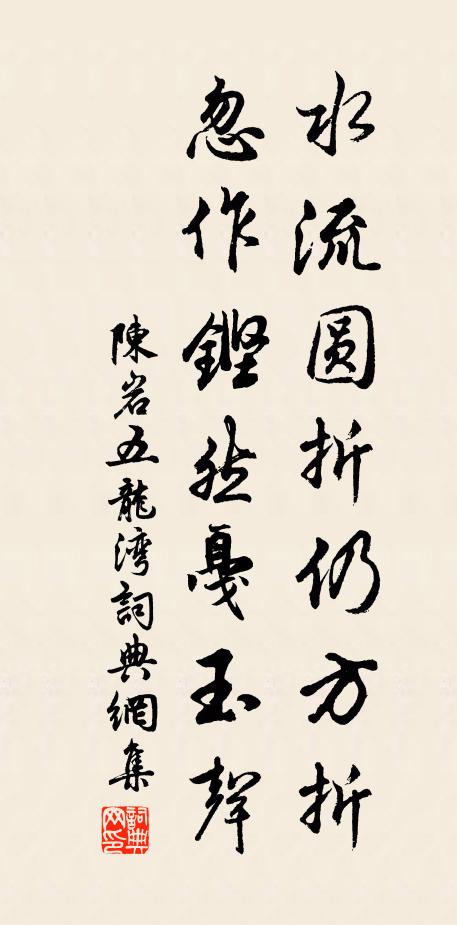 水流圆折仍方折
忽作鏗然戛玉聲
陳岩五龍湾詞典網集
詞典网印